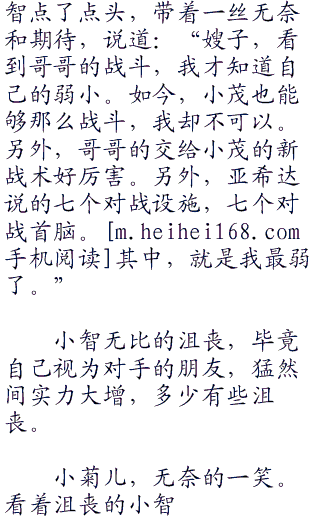 智点了点头，带着一丝无奈
和期待，说道：“嫂子，看
到哥哥的战斗，我才知道自
己的弱小。如今，小茂也能
够那么战斗，我却不可以。
另外，哥哥的交给小茂的新
战术好厉害。另外，亚希达
说的七个对战设施，七个对
战首脑。[m.heihei168.com
手机阅读]其中，就是我最弱
了。”
小智无比的沮丧，毕竟
自己视为对手的朋友，猛然
间实力大增，多少有些沮
丧。
小菊儿，无奈的一笑。
看着沮丧的小智